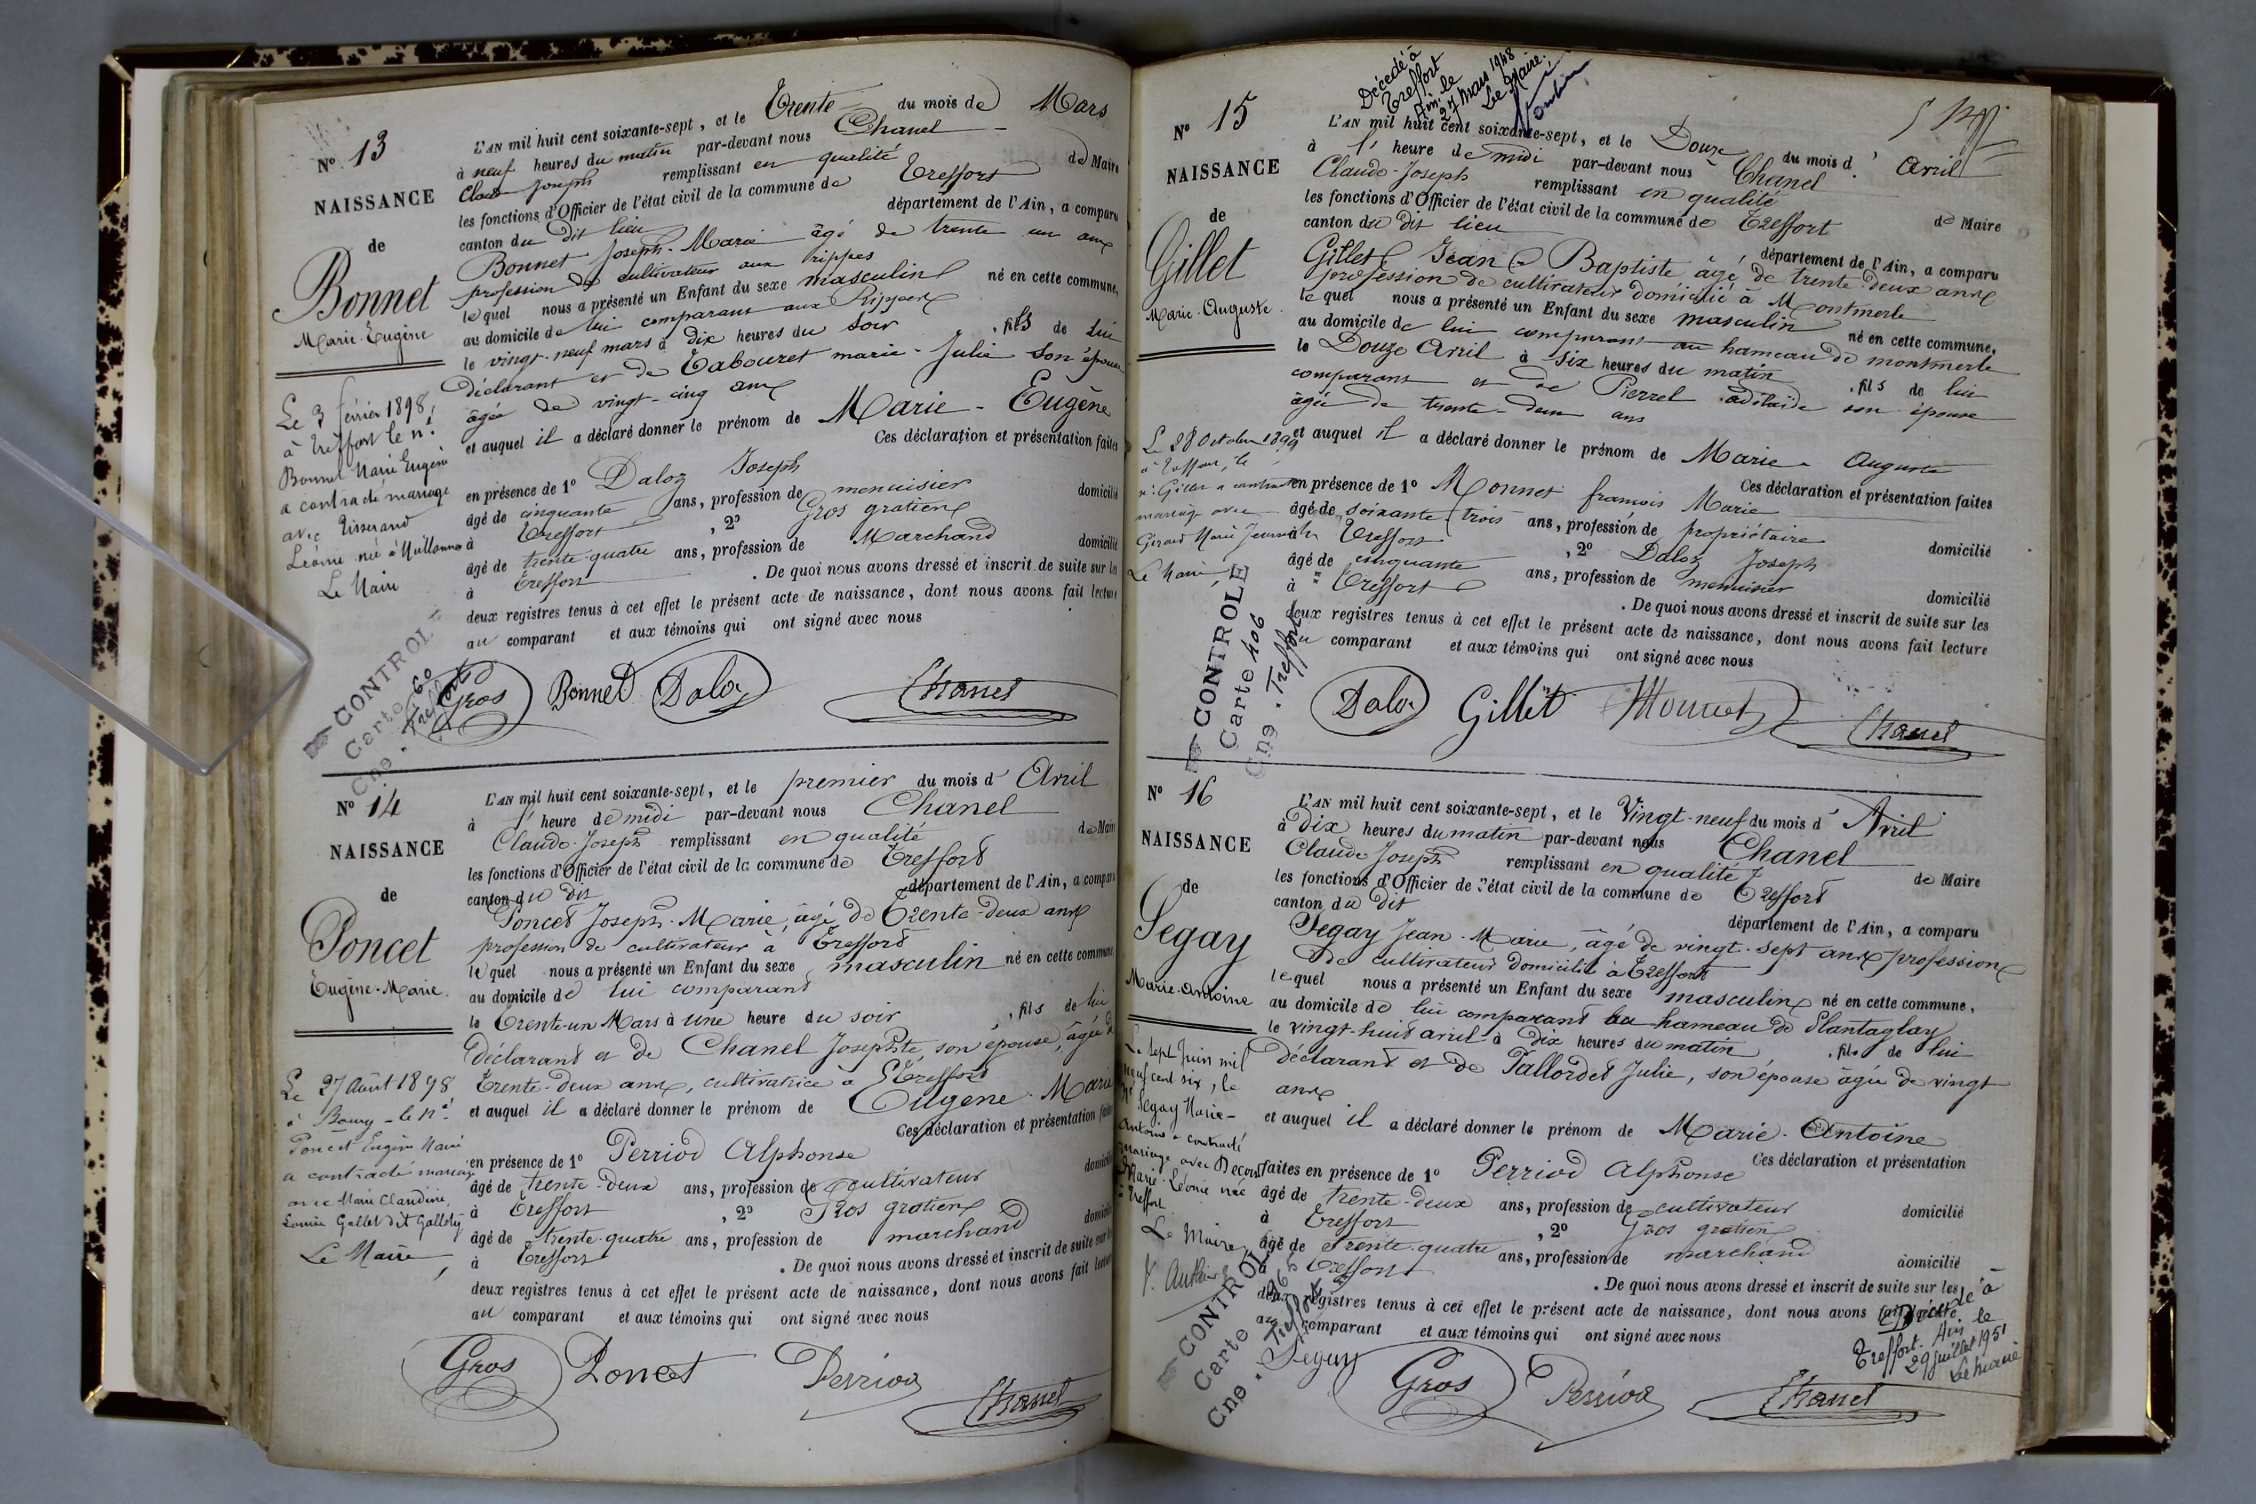 Nº 13
NAISSANCE
de
Bonnet
Marie-Eugène
L'AN mil huit cent soixante-sept, et le Trente du mois de Mars
à neuf heures du matin par-devant nous Chanel
Claude Joseph remplissant en qualité de Maire
les fonctions d'Officier de l'état civil de la commune de Treffort
canton du dit lieu département de l'Ain, a comparu
Bonnet Joseph-Marie âgé de trente un ans
profession de cultivateur aux Rippes
lequel nous a présenté un Enfant du sexe masculin né en cette commune,
au domicile de lui comparant aux Rippes
le vingt-neuf mars à dix heures du soir, fils de lui
Déclarant et de Tabouret marie-Julie son épouse
âgée de vingt-cinq ans
et auquel il a déclaré donner le prénom de Marie-Eugène
Ces déclaration et présentation faites
en présence de 1º Daloz Joseph
âgé de cinquante ans, profession de menuisier domicilié
à Treffort, 2º Gros gratien
âgé de trente-quatre ans, profession de Marchand domicilié
à Treffort. De quoi nous avons dressé et inscrit de suite sur les
deux registres tenus à cet effet le présent acte de naissance, dont nous avons fait lecture
au comparant et aux témoins qui ont signé avec nous
Le 3 février 1898,
à Treffort le né
Bonnet Marie Eugène
a contracté mariage
avec Tisserand
Léonie née à
Le Maire
CONTROLE
Carte 60
Cne. Treffort
Gros Bonnet Daloz Chanel
Nº 14
NAISSANCE
de
Poncet
Eugène-Marie.
L'AN mil huit cent soixante-sept, et le premier du mois d'Avril
à l'heure de midi par-devant nous Chanel
Claude-Joseph remplissant en qualité de Maire
les fonctions d'Officier de l'état civil de la commune de Treffort
canton du dit département de l'Ain, a comparu
Poncet Joseph-Marie, âgé de Trente-deux ans
profession de cultivateur à Treffort
lequel nous a présenté un Enfant du sexe masculin né en cette commune
au domicile de lui comparant
le Trente-un Mars à une heure du soir, fils de lui
Déclarant et de Chanel Josephte, son épouse, âgée de
Trente-deux ans, cultivatrice à Treffort
et auquel il a déclaré donner le prénom de Eugène-Marie
Ces déclaration et présentation faites
en présence de 1º Perriod Alphonse
âgé de trente-deux ans, profession de cultivateur domicilié
à Treffort, 2º Gros gratien
âgé de trente-quatre ans, profession de marchand domicilié
à Treffort. De quoi nous avons dressé et inscrit de suite sur les
deux registres tenus à cet effet le présent acte de naissance, dont nous avons fait lecture
au comparant et aux témoins qui ont signé avec nous
Le 27 Août 1898
à Bourg - le né
Poncet Eugène Marie
a contracté mariage
avec Marie Claudine
Louise Gallet dit Gallety
Le Maire
Gros Poncet Perriod Chanel
Décédé à
Treffort
Ain. le
27 mars 1948
Le Maire.
Nº 15
NAISSANCE
de
Gillet
Marie-Auguste.
L'AN mil huit cent soixante-sept, et le Douze du mois d'Avril
à l'heure de midi par-devant nous Chanel
Claude-Joseph remplissant en qualité de Maire
les fonctions d'Officier de l'état civil de la commune de Treffort
canton du dit lieu département de l'Ain, a comparu
Gillet Jean-Baptiste âgé de trente-deux ans
profession de cultivateur domicilié à Montmerle
lequel nous a présenté un Enfant du sexe masculin né en cette commune,
au domicile de lui comparant au hameau de montmerle
le Douze Avril à six heures du matin, fils de lui
comparant et de Pierrel adélaïde son épouse
âgée de trente-deux ans
et auquel il a déclaré donner le prénom de Marie-Auguste
Ces déclaration et présentation faites
en présence de 1º Monnet françois Marie
âgé de soixante trois ans, profession de propriétaire domicilié
à Treffort, 2º Daloz Joseph
âgé de cinquante ans, profession de menuisier domicilié
à Treffort. De quoi nous avons dressé et inscrit de suite sur les
deux registres tenus à cet effet le présent acte de naissance, dont nous avons fait lecture
au comparant et aux témoins qui ont signé avec nous
Le 28 Octobre 1899
à Treffort, le
né Gillet a contracté
mariage avec
Girard Marie
Le Maire
CONTROLE
Carte 406
Cne. Treffort
Daloz Gillet Monnet Chanel
Nº 16
NAISSANCE
de
Segay
Marie-Antoine
L'AN mil huit cent soixante-sept, et le Vingt-neuf du mois d'Avril
à Dix heures du matin par-devant nous Chanel
Claude Joseph remplissant en qualité de Maire
les fonctions d'Officier de l'état civil de la commune de Treffort
canton du dit département de l'Ain, a comparu
Segay Jean-Marie, âgé de vingt-sept ans profession
de cultivateur domicilié à Treffort
lequel nous a présenté un Enfant du sexe masculin né en cette commune,
au domicile de lui comparant au hameau de Plantaglay
le vingt-huit avril à Dix heures du matin, fils de lui
Déclarant et de Pallordet Julie, son épouse âgée de vingt
ans
et auquel il a déclaré donner le prénom de Marie-Antoine
Ces déclaration et présentation
faites en présence de 1º Perriod Alphonse
âgé de trente-deux ans, profession de cultivateur domicilié
à Treffort, 2º Gros gratien
âgé de trente-quatre ans, profession de marchand domicilié
à Treffort. De quoi nous avons dressé et inscrit de suite sur les
deux registres tenus à cet effet le présent acte de naissance, dont nous avons fait lecture
au comparant et aux témoins qui ont signé avec nous
Le sept Juin mil
neuf cent six, le
né Segay Marie-
Antoine a contracté
mariage avec
Marie-Léonie née
à Treffort
Le Maire
CONTROLE
Carte
Cne. Treffort
Décédé à
Treffort. Ain le
29 juillet 1951
Le maire
Segay Gros Perriod Chanel